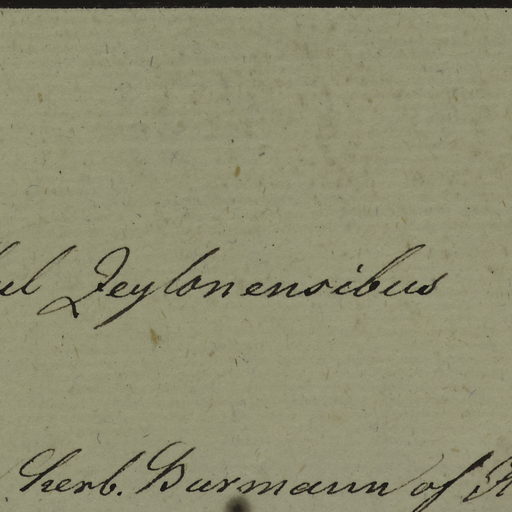 Zeylonensibus
herb. Burmann of